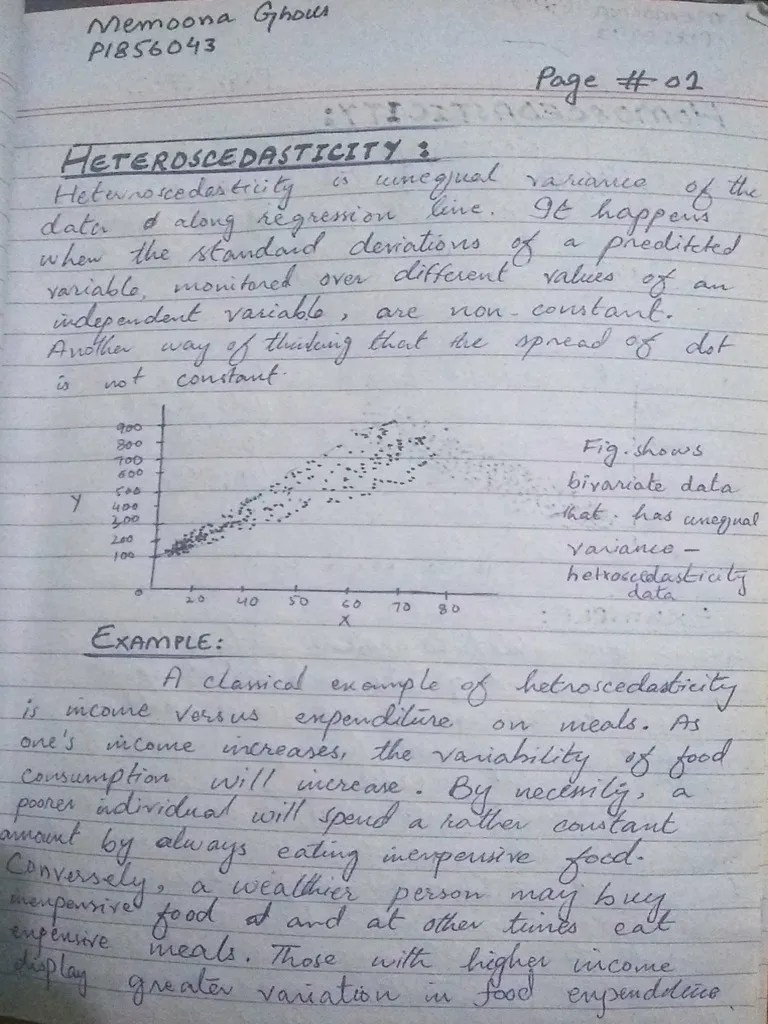 Memoona Ghous
P1856043
Page # 01
HETEROSCEDASTICITY :
Heternoscedasticity is unequal variance of the
data along regression line. It happens
when the standard deviations of a preditcted
variable, monitored over different values of an
independent variable, are non-constant.
Another way of thinking that the spread of dot
is not constant.
900
800
700
600
500
400
300
200
100
0
Y
20 40 50 60 70 80
X
Fig. shows
bivariate data
that has unequal
variance –
hetroscedasticity
data
EXAMPLE:
A classical example of hetroscedasticity
is income versus expenditure on meals. As
one's income increases, the variability of food
consumption will increase. By necessity, a
poorer individual will spend a rather constant
amount by always eating inexpensive food.
Conversely, a wealthier person may buy
inexpensive food and at other times eat
expensive meals. Those with higher income
display greater variation in food expenditure